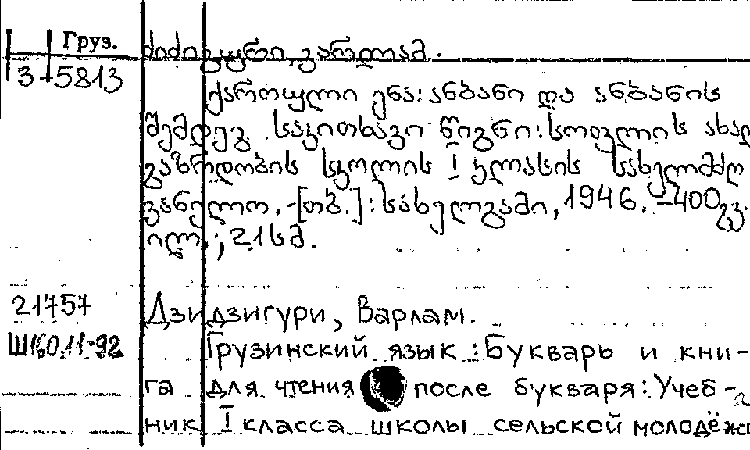 Груз.
3-5813
ძიძიგური, ვარლამ.
ქართული ენა: ანბანი და ანბანის
შემდეგ საკითხავი წიგნი: სოფლის ახალ
გაზრდობის სკოლის I კლასის სახელმძღ
ვანელო. -[თბ.]: სახელგამი, 1946. -400 გვ.
ილ.; 21 სმ.
21757
Дзидзигури, Варлам.
Ш160.11-92
Грузинский язык: Букварь и кни-
га для чтения после букваря: Учеб-
ник I класса школы сельской молодёж